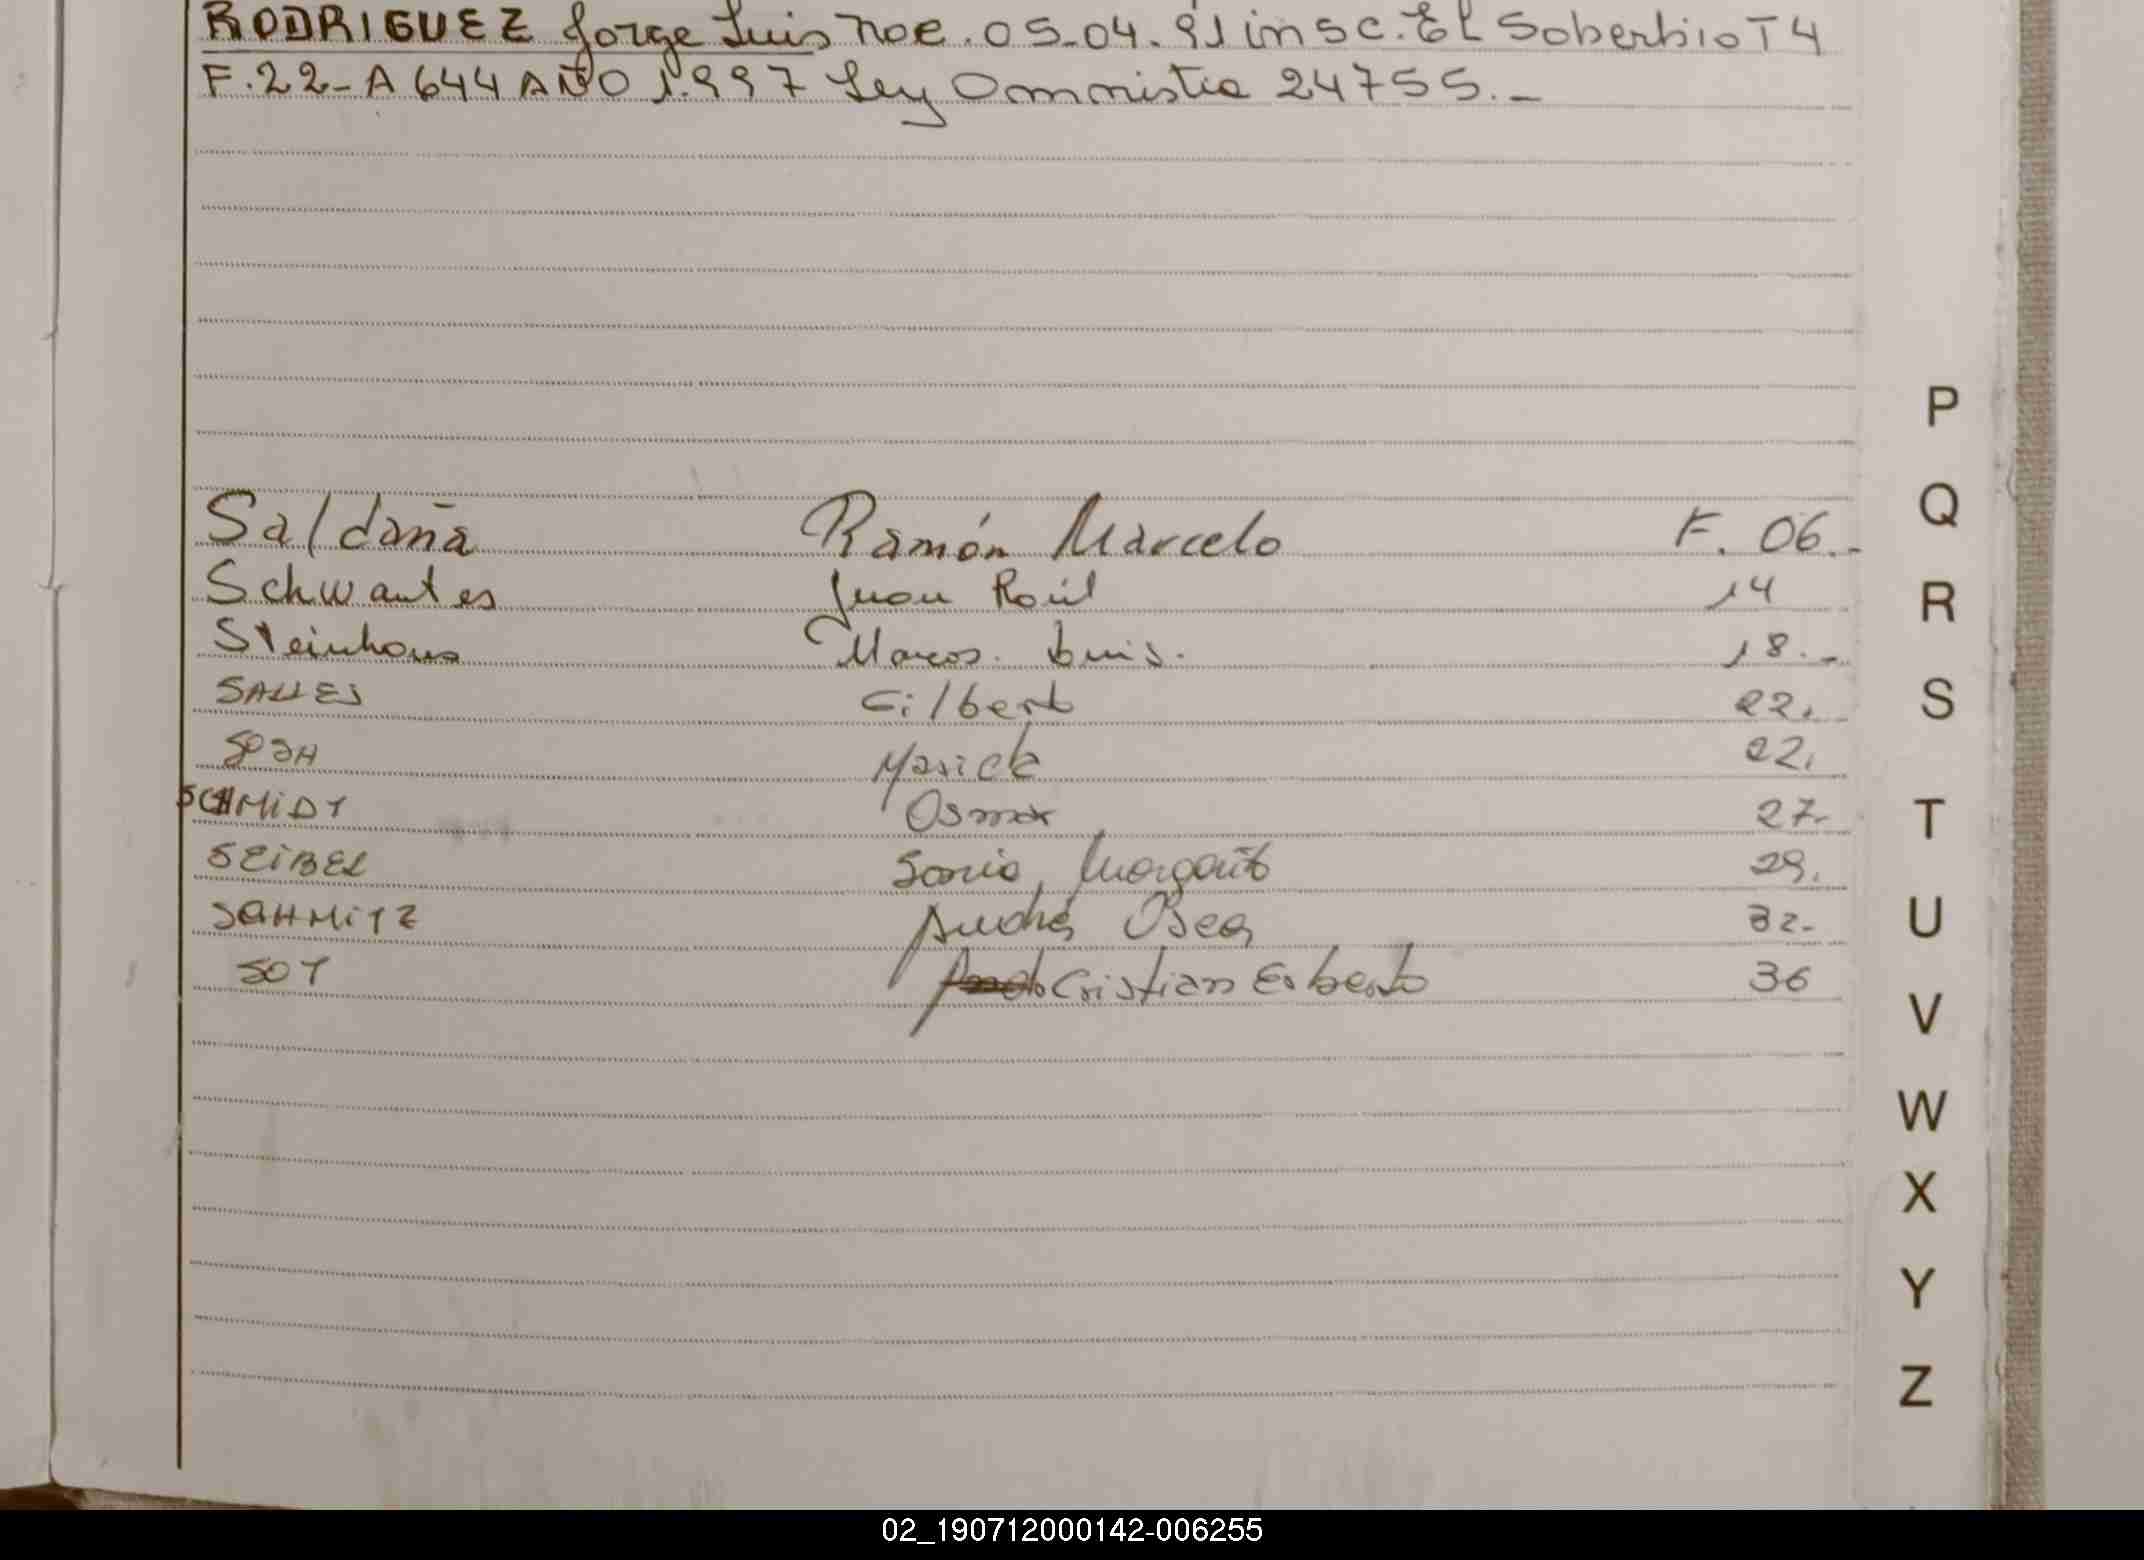 RODRIGUEZ Jorge Luis noc. 05-04-91 insc. El Soberbio T 4
F.22- A 644 AÑO 1.997 Ley Ommistia 24755.-
Saldaña Ramón Marcelo F. 06.-
Schwantes Juan Raúl 14
Steinhaus Marcos Luis. 18.-
SALLES Gilberto 22.
SOSA 22.
SCHMIDT Osmar 27-
SEIBEL Sonia Margarita 29.
SCHMITZ Andrés Oscar 32-
SOT Cristian Erberto 36
P
Q
R
S
T
U
V
W
X
Y
Z
02_190712000142-006255